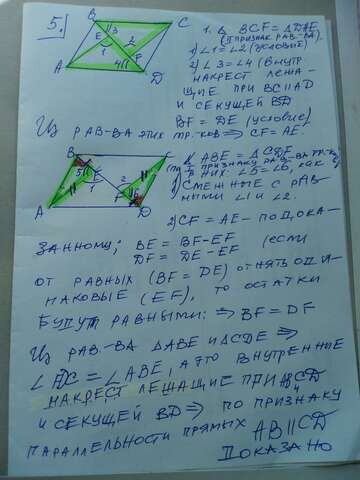 5.
B
C
A
D
E
F
3
2
1
4
1. Δ BCF = ΔDAE
(II ПРИЗНАК РАВ-ВА).
1) ∠1 = ∠2 (УСЛОВИЕ)
2) ∠3 = ∠4 (ВНУТР
НАКРЕСТ ЛЕЖА-
ЩИЕ ПРИ BC||AD
И СЕКУЩЕЙ BD
BF = DE (УСЛОВИЕ)
ИЗ РАВ-ВА ЭТИХ ТР-КОВ ⇒ CF = AE.
B
C
A
D
5
1
2
6
Δ ABE = ΔCDF
ПРИЗНАКУ РАВ-ВА
В НИХ: ∠5=∠6, КАК
СМЕЖНЫЕ С РАВ-
НЫМИ ∠1 И ∠2.
2) CF = AE – ПО ДОКА-
ЗАННОМУ; BE = BF-EF
DF = DE-EF (ЕСЛИ
ОТ РАВНЫХ (BF = DE) ОТНЯТЬ ОДИ-
НАКОВЫЕ (EF), ТО ОСТАТКИ
БУДУТ РАВНЫМИ: ⇒ BF = DF
ИЗ РАВ-ВА ΔABE И ΔCDE ⇒
= ∠ABE, А ЭТО ВНУТРЕННИЕ
НАКРЕСТ ЛЕЖАЩИЕ ПРИ
И СЕКУЩЕЙ BD ⇒ ПО ПРИЗНАКУ
ПАРАЛЛЕЛЬНОСТИ ПРЯМЫХ AB||CD
ДОКАЗАНО